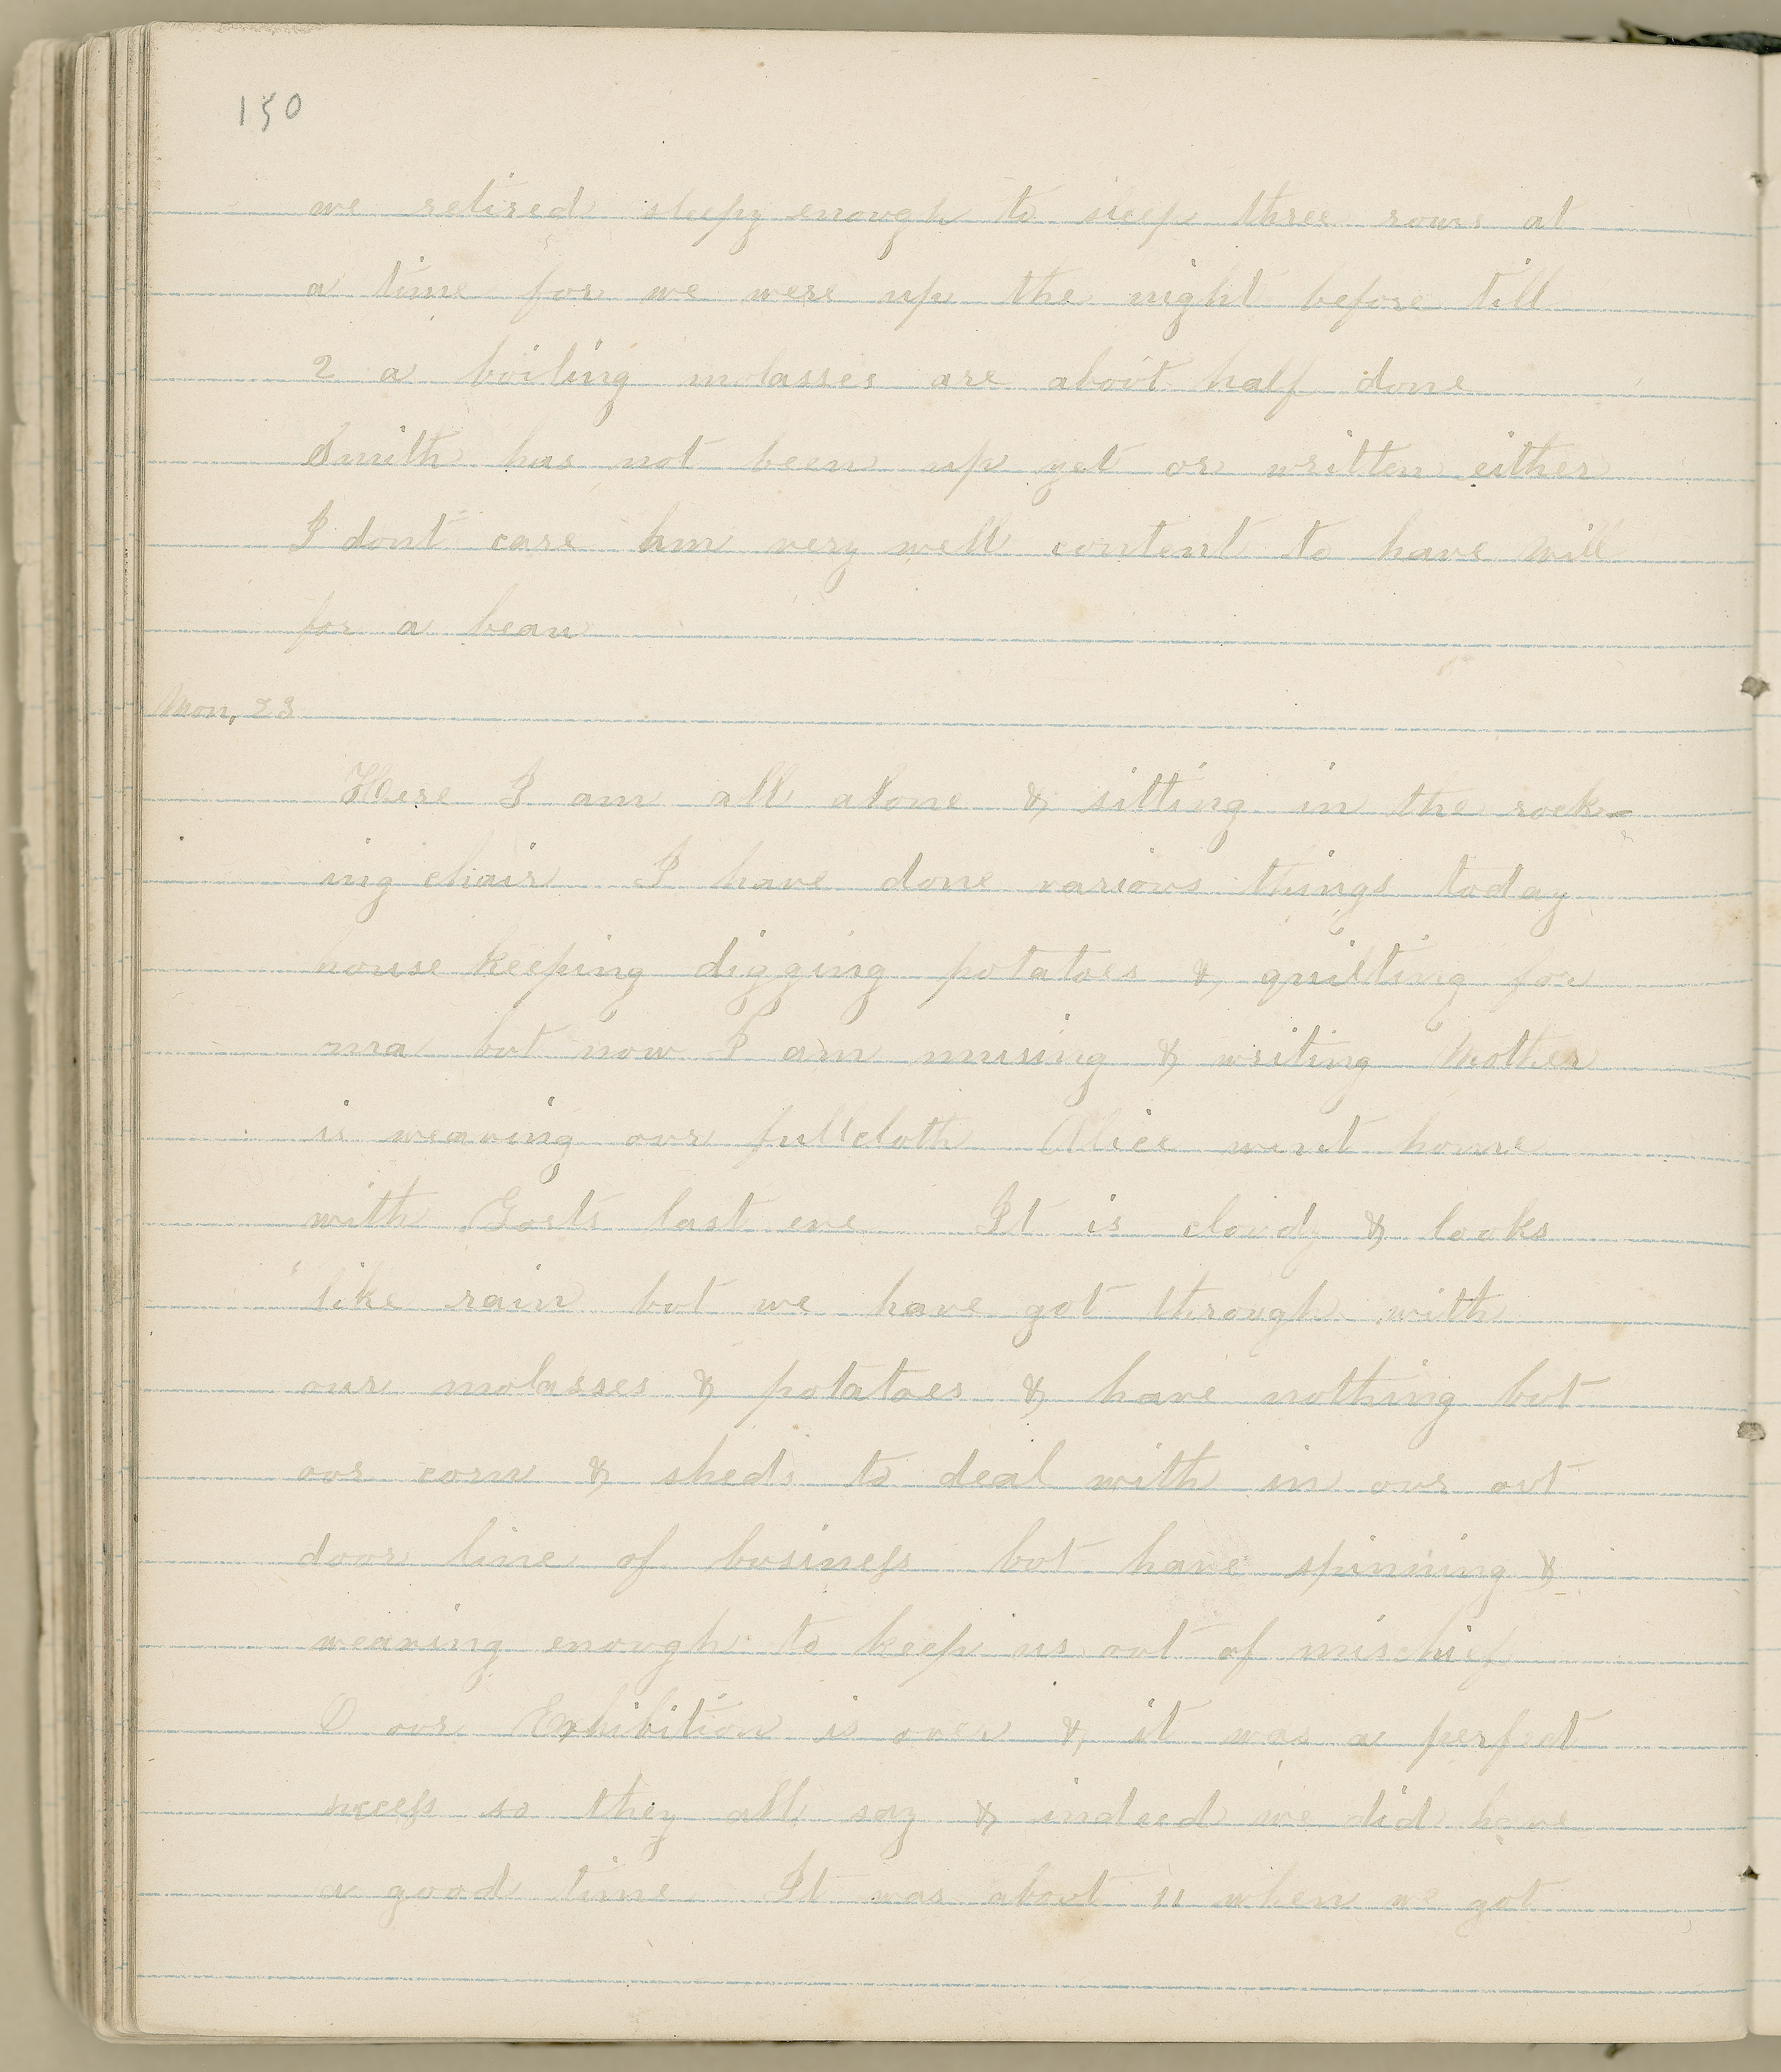 150
we retired sleepy enough to sleep three rows at
a time for we were up the night before till
2 a boiling molasses are about half done
Smith has not been up yet or written either
I dont care very well content to have Will
for a beau
Mon, 23
Here I am all alone & sitting in the rock-
ing chair I have done various things today
house keeping digging potatoes & quilting for
ma but now I am musing & writing Mother
is weaving our fullcloth Alice went home
with last eve It is cloudy & looks
like rain but we have got through with
our molasses & potatoes & have nothing but
our corn & sheds to deal with in our out
door line of business but have spinning &
weaving enough to keep us out of mischief
O our Exhibition is over & it was a perfect
success so they all say & indeed we did have
a good time It was about 11 when we got